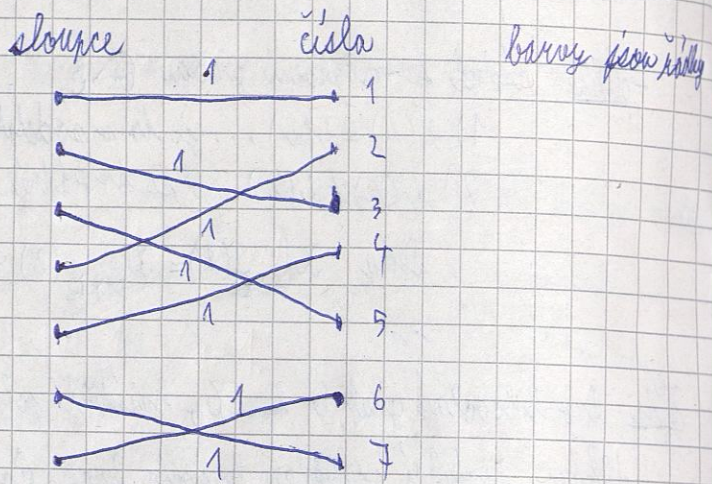 sloupce čísla barvy jsou řádky
1 1
1 2
1 3
1 4
1 5
1 6
1 7